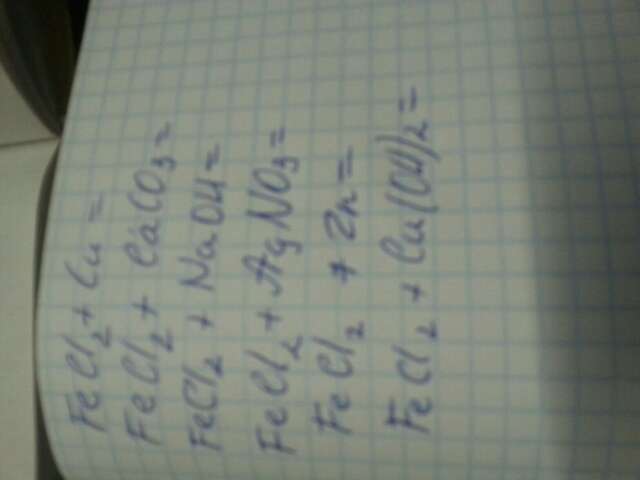 FeCl2 + Cu =
FeCl2 + CaCO3 =
FeCl2 + NaOH =
FeCl2 + AgNO3 =
FeCl2 + Zn =
FeCl2 + Cu(OH)2 =